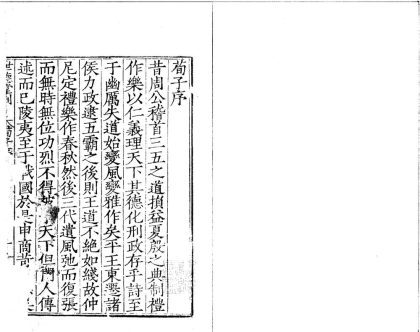 荀子序
昔周公稽首三五之道損益夏殷之典制禮
作樂以仁義理天下其德化刑政存乎詩至
于幽厲失道始變風變雅作矣平王東遷諸
侯力政逮五霸之後則王道不絕如綫故仲
尼定禮樂作春秋然後三代遺風弛而復張
而無時無位功烈不得被于天下但門人傳
述而已陵夷至于戰國於是申商苛